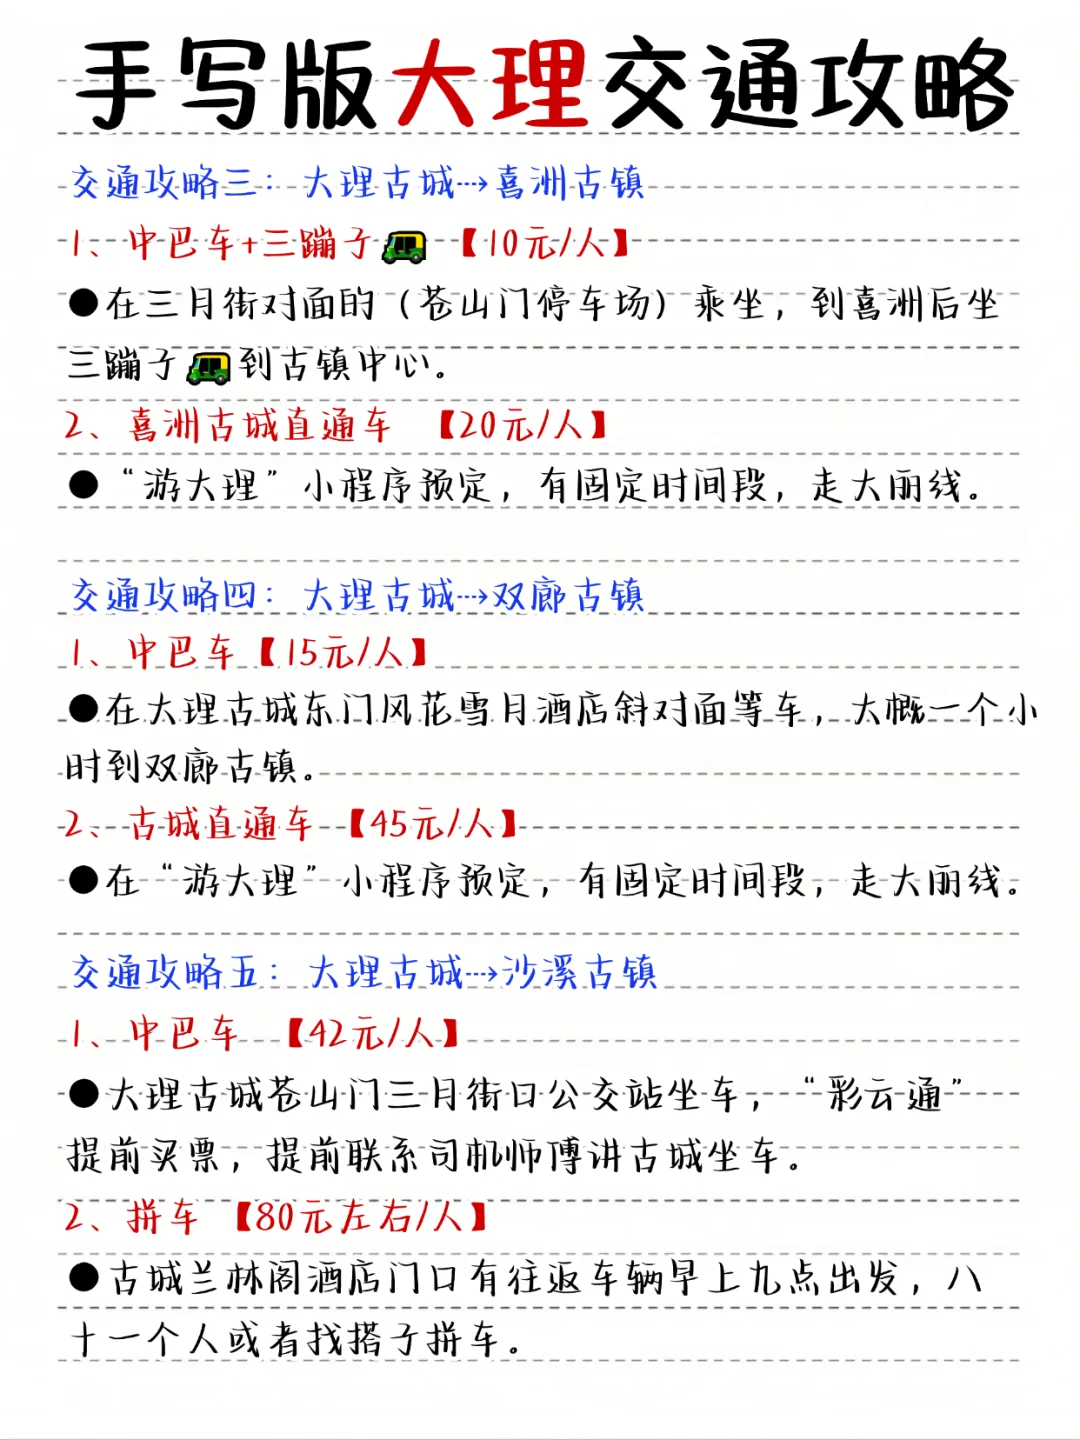 手写版大理交通攻略
交通攻略三：大理古城⇢喜洲古镇
1、中巴车+三蹦子🛺【10元/人】
●在三月街对面的（苍山门停车场）乘坐，到喜洲后坐
三蹦子🛺到古镇中心。
2、喜洲古城直通车【20元/人】
●“游大理”小程序预定，有固定时间段，走大丽线。
交通攻略四：大理古城⇢双廊古镇
1、中巴车【15元/人】
●在大理古城东门风花雪月酒店斜对面等车，大概一个小
时到双廊古镇。
2、古城直通车【45元/人】
●在“游大理”小程序预定，有固定时间段，走大丽线。
交通攻略五：大理古城⇢沙溪古镇
1、中巴车【42元/人】
●大理古城苍山门三月街口公交站坐车，“彩云通”
提前买票，提前联系司机师傅讲古城坐车。
2、拼车【80元左右/人】
●古城兰林阁酒店门口有往返车辆早上九点出发，八
十一个人或者找搭子拼车。